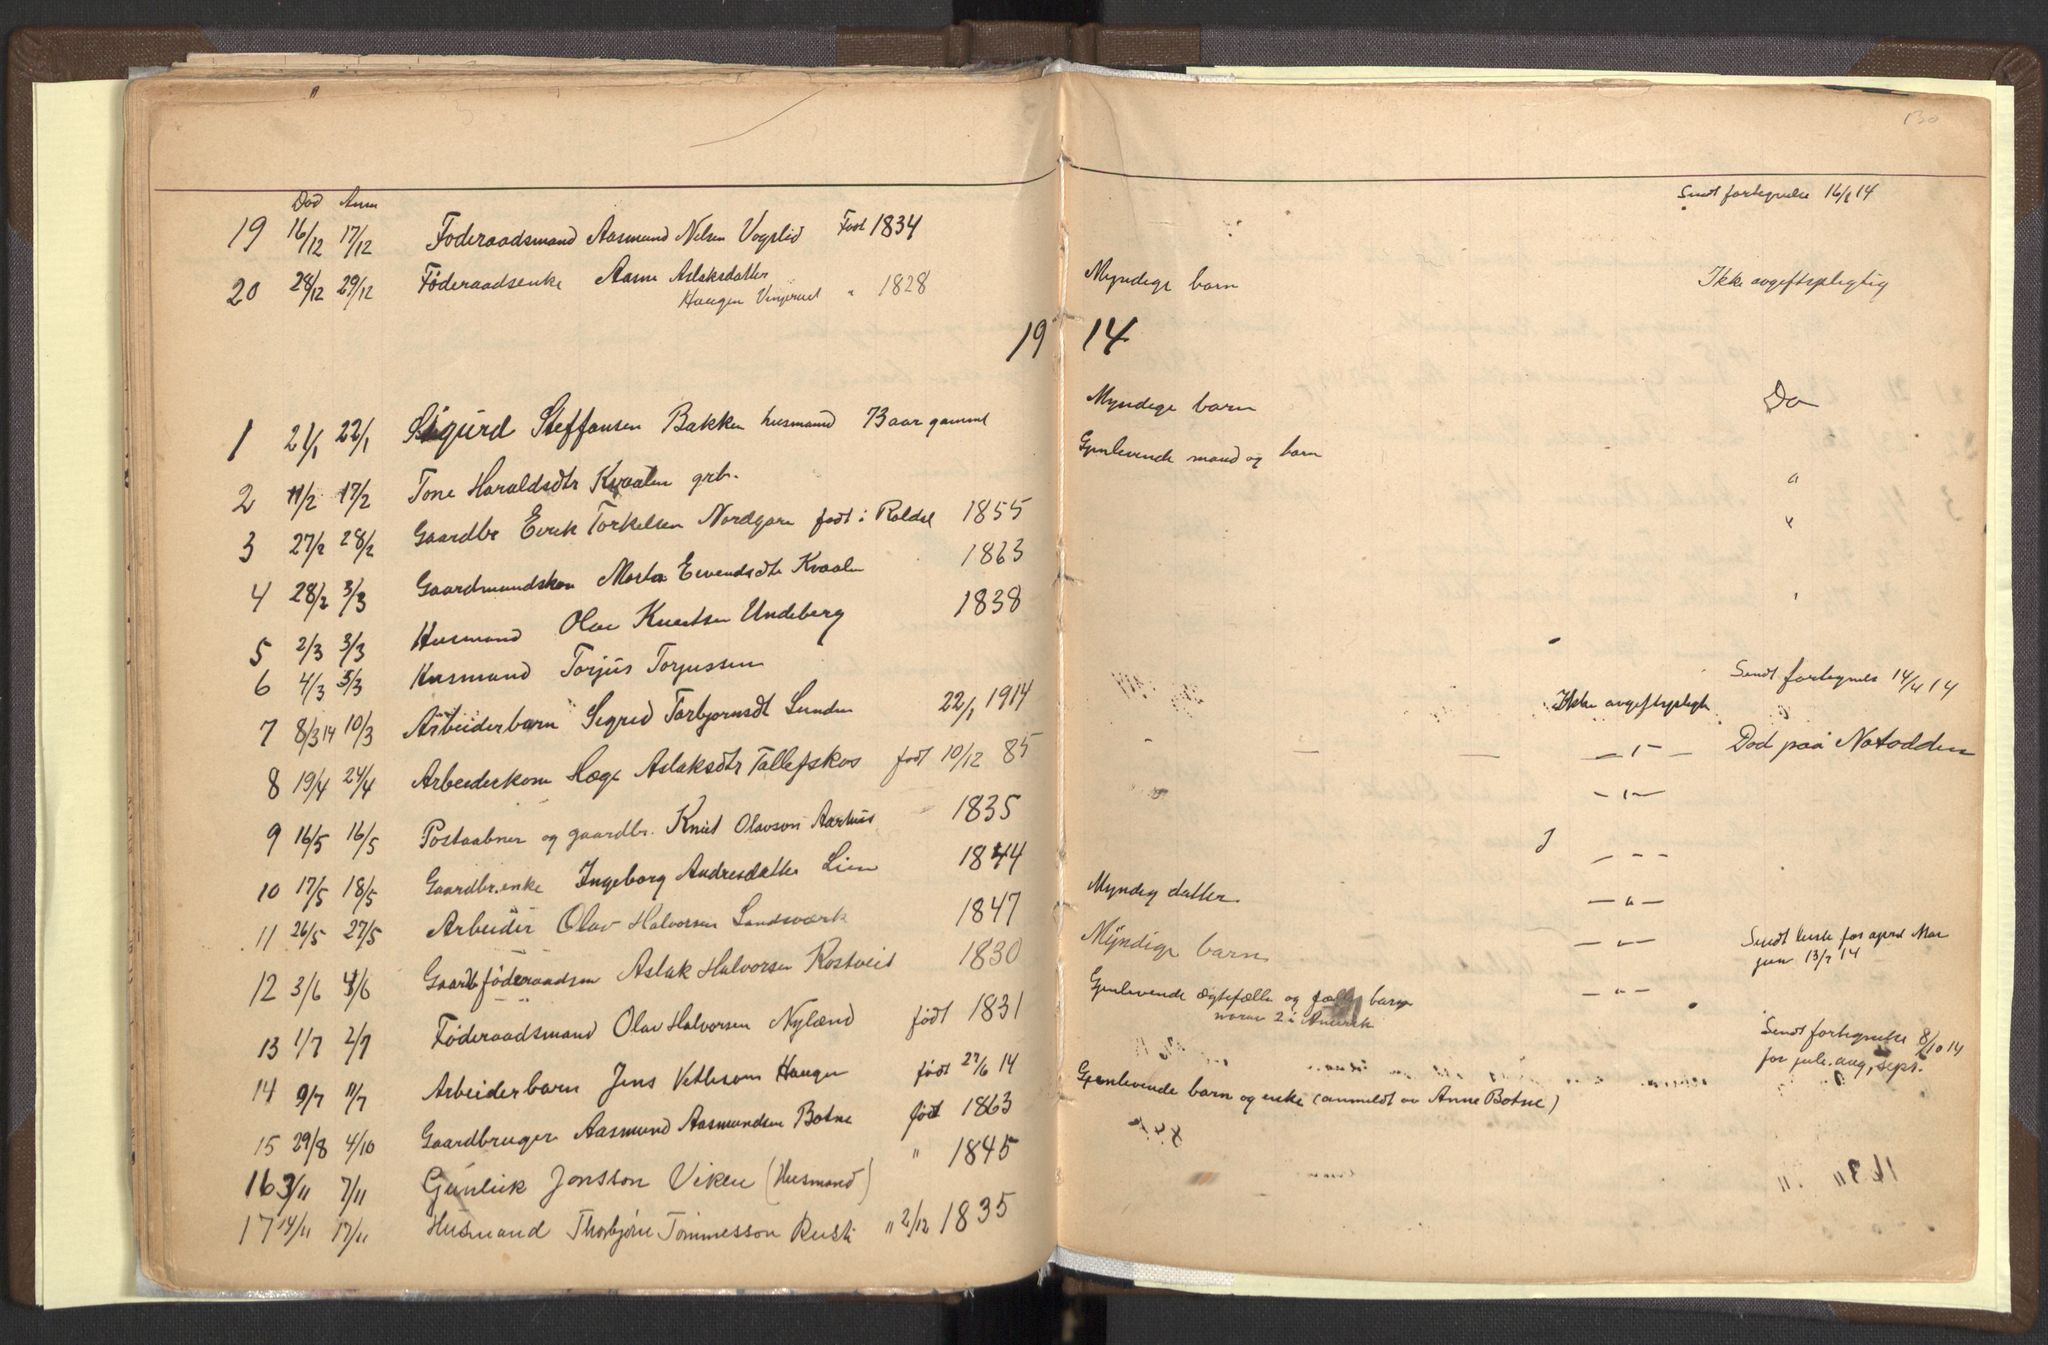 Død Anm
19 16/12 17/12 Foderaadsmand Aasmund Nilsen Vogslid Født 1834
Sendt fortegnelse 16/1 14
20 28/12 29/12 Føderaadsenke Aasne Aslaksdatter
Haugen Vinjerud " 1828
Myndige barn
Ikke avgeftspligtig
19 14
1 21/1 22/1 Sigurd Steffansen Bakken husmand 73 aar gammel
Myndige barn
Do
2 11/2 17/2 Tone Haraldsdtr Kvaalen grb.
Gjenlevende mand og barn
"
3 27/2 28/2 Gaardbr Eirik Torkelsen Nordgare født i Roldal 1855
"
4 28/2 3/3 Gaardmandskon Marta Eivendsdtr Kvaalen 1863
"
5 2/3 3/3 Husmand Olav Knutsen Undeberg 1838
6 4/3 5/3 Husmand Torjus Torjussen
Sendt fortegnels 14/4 14
7 8/3 14 10/3 Arbeiderbarn Sigrid Torbjornsdt Lunden 22/1 1914
Ikke avgeftspligt
8 19/4 24/4 Arbeiderkone Hæge Aslaksdtr Tallefskos født 10/12 85
— — — " — Død paa Notodden
9 16/5 16/5 Postaabner og gaardbr. Knut Olavson Aarhus 1835
— " —
10 17/5 18/5 Gaardbr.enke Ingeborg Andresdatter Lien 1844
— " —
11 26/5 27/5 Arbeider Olav Halvorsen Landsværk 1847
Myndig datter
— " —
12 3/6 4/6 Gaardføderaadsm Aslak Halvorsen Rostveit 1830
Myndige barn
— " —
Sendt liste for april Mai
jun 13/7 14
13 1/7 2/7 Føderaadsmand Olav Halvorsen Nyland født 1831
Gjenlevende ægtefælle og fælles barn
hvorav 2 i Amerik
— " —
14 9/7 11/7 Arbeiderbarn Jens Vetlesen Haugen født 27/6 14
Sendt fortegnelse 8/10 14
for juli. aug, sept.
15 29/8 4/10 Gaardbruger Aasmund Aasmundsen Botne født 1863
Gjenlevende barn og enke (anmeldt av Anne Botne)
16 3/11 7/11 Gunleik Jonsson Viken (Husmand) " 1845
17 14/11 17/11 Husmand Thorbjørn Tommesson Rusti " 2/12 1835